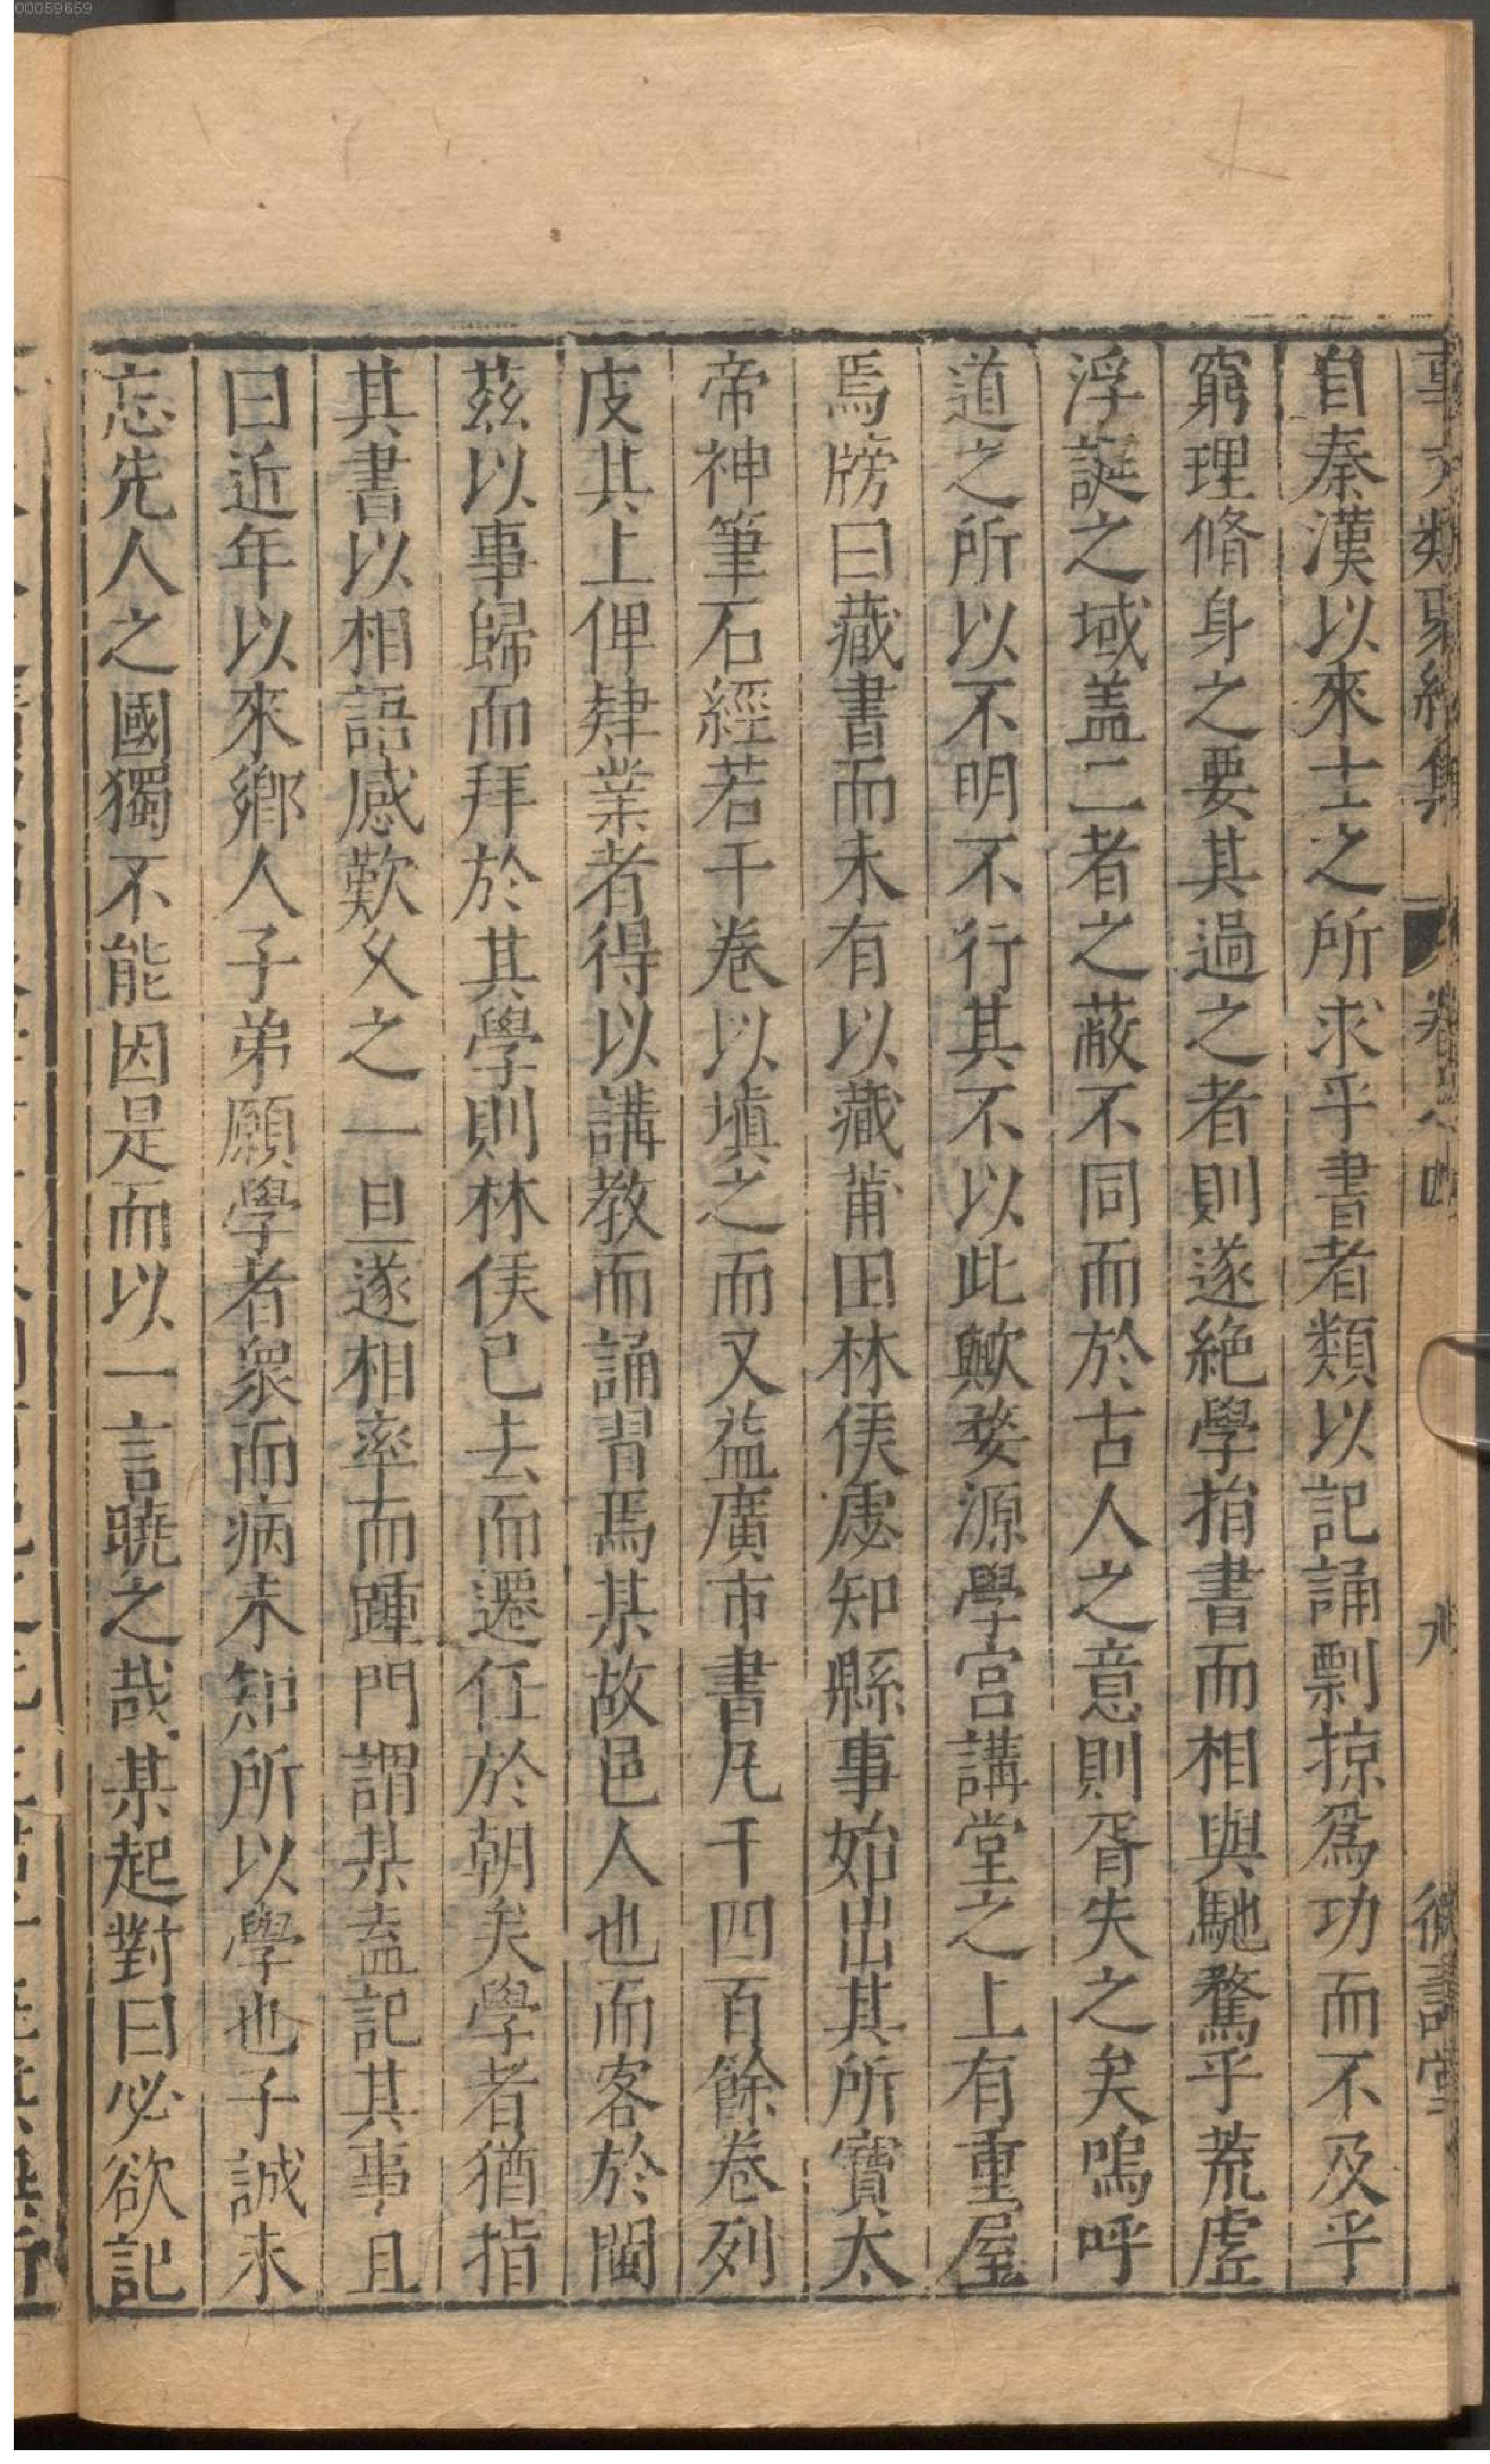 00059659
事文類聚編集 卷之四 九 德壽堂
自秦漢以來士之所求乎書者類以記誦剽掠爲功而不及乎
窮理脩身之要其過之者則遂絶學捐書而相與馳騖乎荒虗
浮誕之域盖二者之蔽不同而於古人之意則胥失之矣嗚呼
道之所以不明不行其不以此歟婺源學宫講堂之上有重屋
焉牓曰藏書而未有以藏莆田林侯虙知縣事始出其所寶太
帝神筆石經若干卷以填之而又益廣市書凡千四百餘卷列
庋其上俾肄業者得以講教而誦習焉某故邑人也而客於閩
茲以事歸而拜於其學則林侯已去而遷任於朝矣學者猶指
其書以相語感歎乆之一旦遂相率而踵門謂某盍記其事且
曰近年以來鄉人子弟願學者衆而病未知所以學也子誠未
忘先人之國獨不能因是而以一言曉之哉某起對曰必欲記